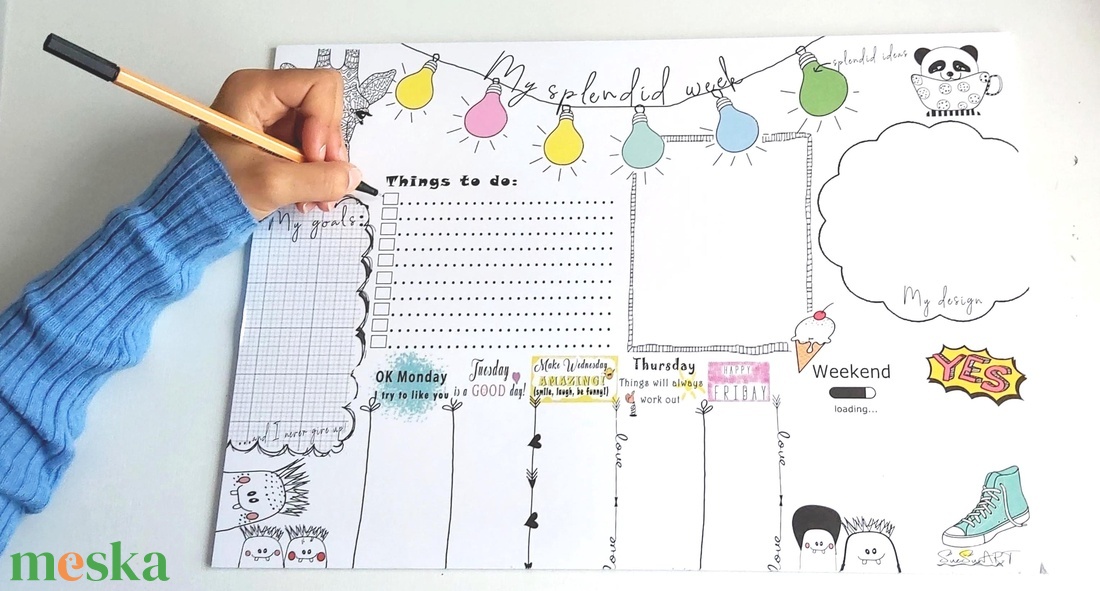 My splendid week
splendid ideas
Things to do:
My goals:
My design
...and I never give up
OK Monday
I try to like you
Tuesday
is a GOOD day!
Make Wednesday
AMAZING!
(smile, laugh, be funny!)
Thursday
Things will always
work out
HAPPY
FRIDAY
Weekend
loading...
YES
love
love
love
love
SueSueART
meska